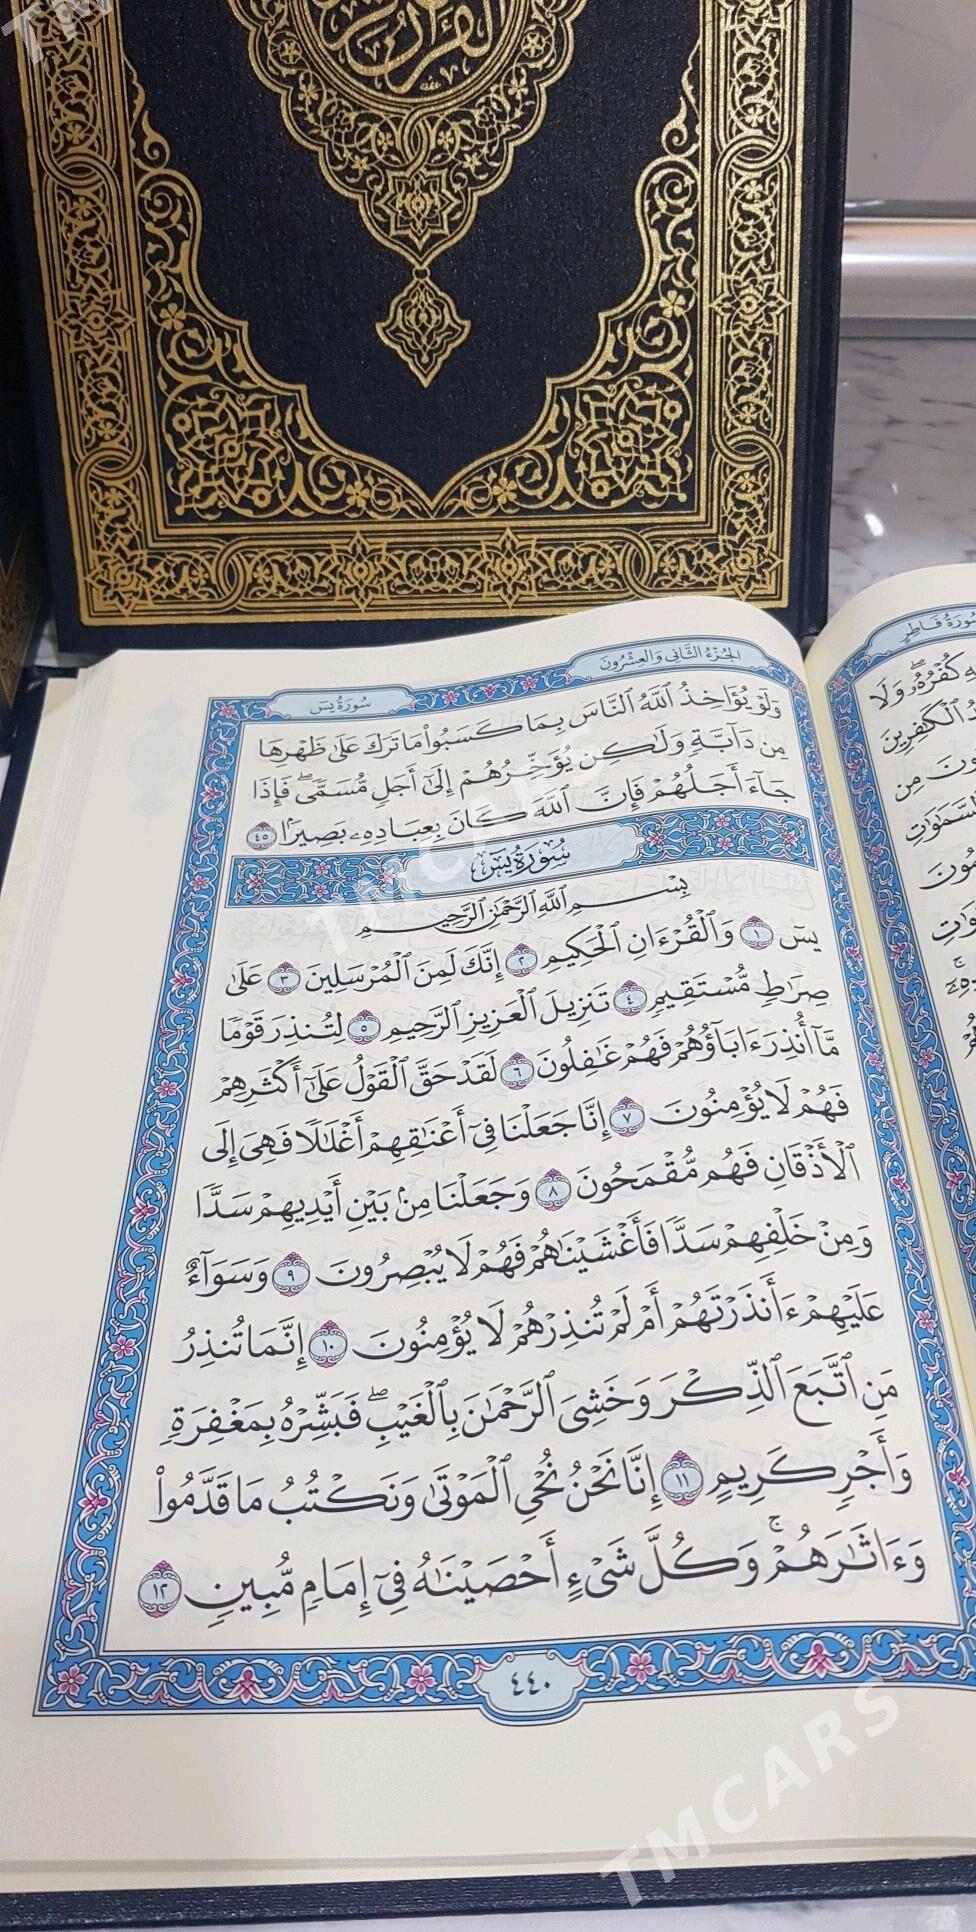 القرآن الكريم
الجزء الثاني والعشرون
سورة يس
وَلَوْ يُؤَاخِذُ ٱللَّهُ ٱلنَّاسَ بِمَا كَسَبُوا۟ مَا تَرَكَ عَلَىٰ ظَهْرِهَا
مِن دَآبَّةٍ وَلَـٰكِن يُؤَخِّرُهُمْ إِلَىٰٓ أَجَلٍ مُّسَمًّى ۖ فَإِذَا
جَآءَ أَجَلُهُمْ فَإِنَّ ٱللَّهَ كَانَ بِعِبَادِهِۦ بَصِيرًۢا ٤٥
سُورَةُ يسٓ
بِسْمِ ٱللَّهِ ٱلرَّحْمَـٰنِ ٱلرَّحِيمِ
يسٓ ١ وَٱلْقُرْءَانِ ٱلْحَكِيمِ ٢ إِنَّكَ لَمِنَ ٱلْمُرْسَلِينَ ٣ عَلَىٰ
صِرَٰطٍ مُّسْتَقِيمٍ ٤ تَنزِيلَ ٱلْعَزِيزِ ٱلرَّحِيمِ ٥ لِتُنذِرَ قَوْمًا
مَّآ أُنذِرَ ءَابَآؤُهُمْ فَهُمْ غَـٰفِلُونَ ٦ لَقَدْ حَقَّ ٱلْقَوْلُ عَلَىٰٓ أَكْثَرِهِمْ
فَهُمْ لَا يُؤْمِنُونَ ٧ إِنَّا جَعَلْنَا فِىٓ أَعْنَـٰقِهِمْ أَغْلَـٰلًا فَهِىَ إِلَى
ٱلْأَذْقَانِ فَهُم مُّقْمَحُونَ ٨ وَجَعَلْنَا مِنۢ بَيْنِ أَيْدِيهِمْ سَدًّا
وَمِنْ خَلْفِهِمْ سَدًّا فَأَغْشَيْنَـٰهُمْ فَهُمْ لَا يُبْصِرُونَ ٩ وَسَوَآءٌ
عَلَيْهِمْ ءَأَنذَرْتَهُمْ أَمْ لَمْ تُنذِرْهُمْ لَا يُؤْمِنُونَ ١٠ إِنَّمَا تُنذِرُ
مَنِ ٱتَّبَعَ ٱلذِّكْرَ وَخَشِىَ ٱلرَّحْمَـٰنَ بِٱلْغَيْبِ ۖ فَبَشِّرْهُ بِمَغْفِرَةٍ
وَأَجْرٍ كَرِيمٍ ١١ إِنَّا نَحْنُ نُحْىِ ٱلْمَوْتَىٰ وَنَكْتُبُ مَا قَدَّمُوا۟
وَءَاثَـٰرَهُمْ ۚ وَكُلَّ شَىْءٍ أَحْصَيْنَـٰهُ فِىٓ إِمَامٍ مُّبِينٍ ١٢
٤٤٠
سورة فاطر
كُفْرُهُۥ ۖ وَلَا
ٱلْكَـٰفِرِينَ
مِن
TMCARS
TMCARS